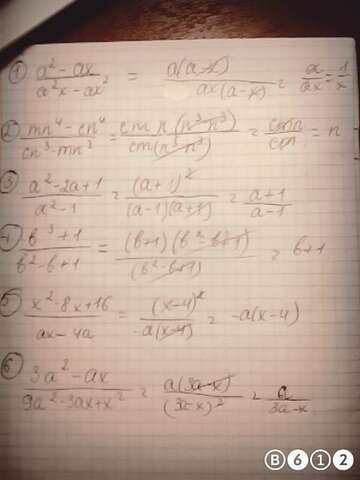 ① a² - ax / a²x - ax² = a(a-x) / ax(a-x) = a/ax = 1/x
② mn⁴ - cn⁴ / cn³ - mn³ = n = n
③ a² - 2a + 1 / a² - 1 = (a+1)² / (a-1)(a+1) = a+1 / a-1
④ b³ + 1 / b² - b + 1 = (b+1)(b² - b + 1) / (b² - b + 1) = b+1
⑤ x² - 8x + 16 / ax - 4a = (x-4)² / -a(x-4) = -a(x-4)
⑥ 3a² - ax / 9a² - 3ax + x² = a(3a-x) / (3a-x)² = a / 3a-x
B612